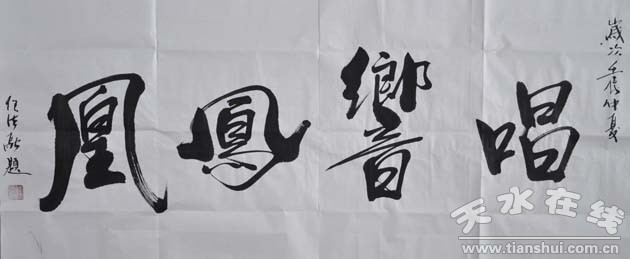 歲次仲夏
唱響鳳凰
任法融題
天水在线
www.tianshui.com.cn